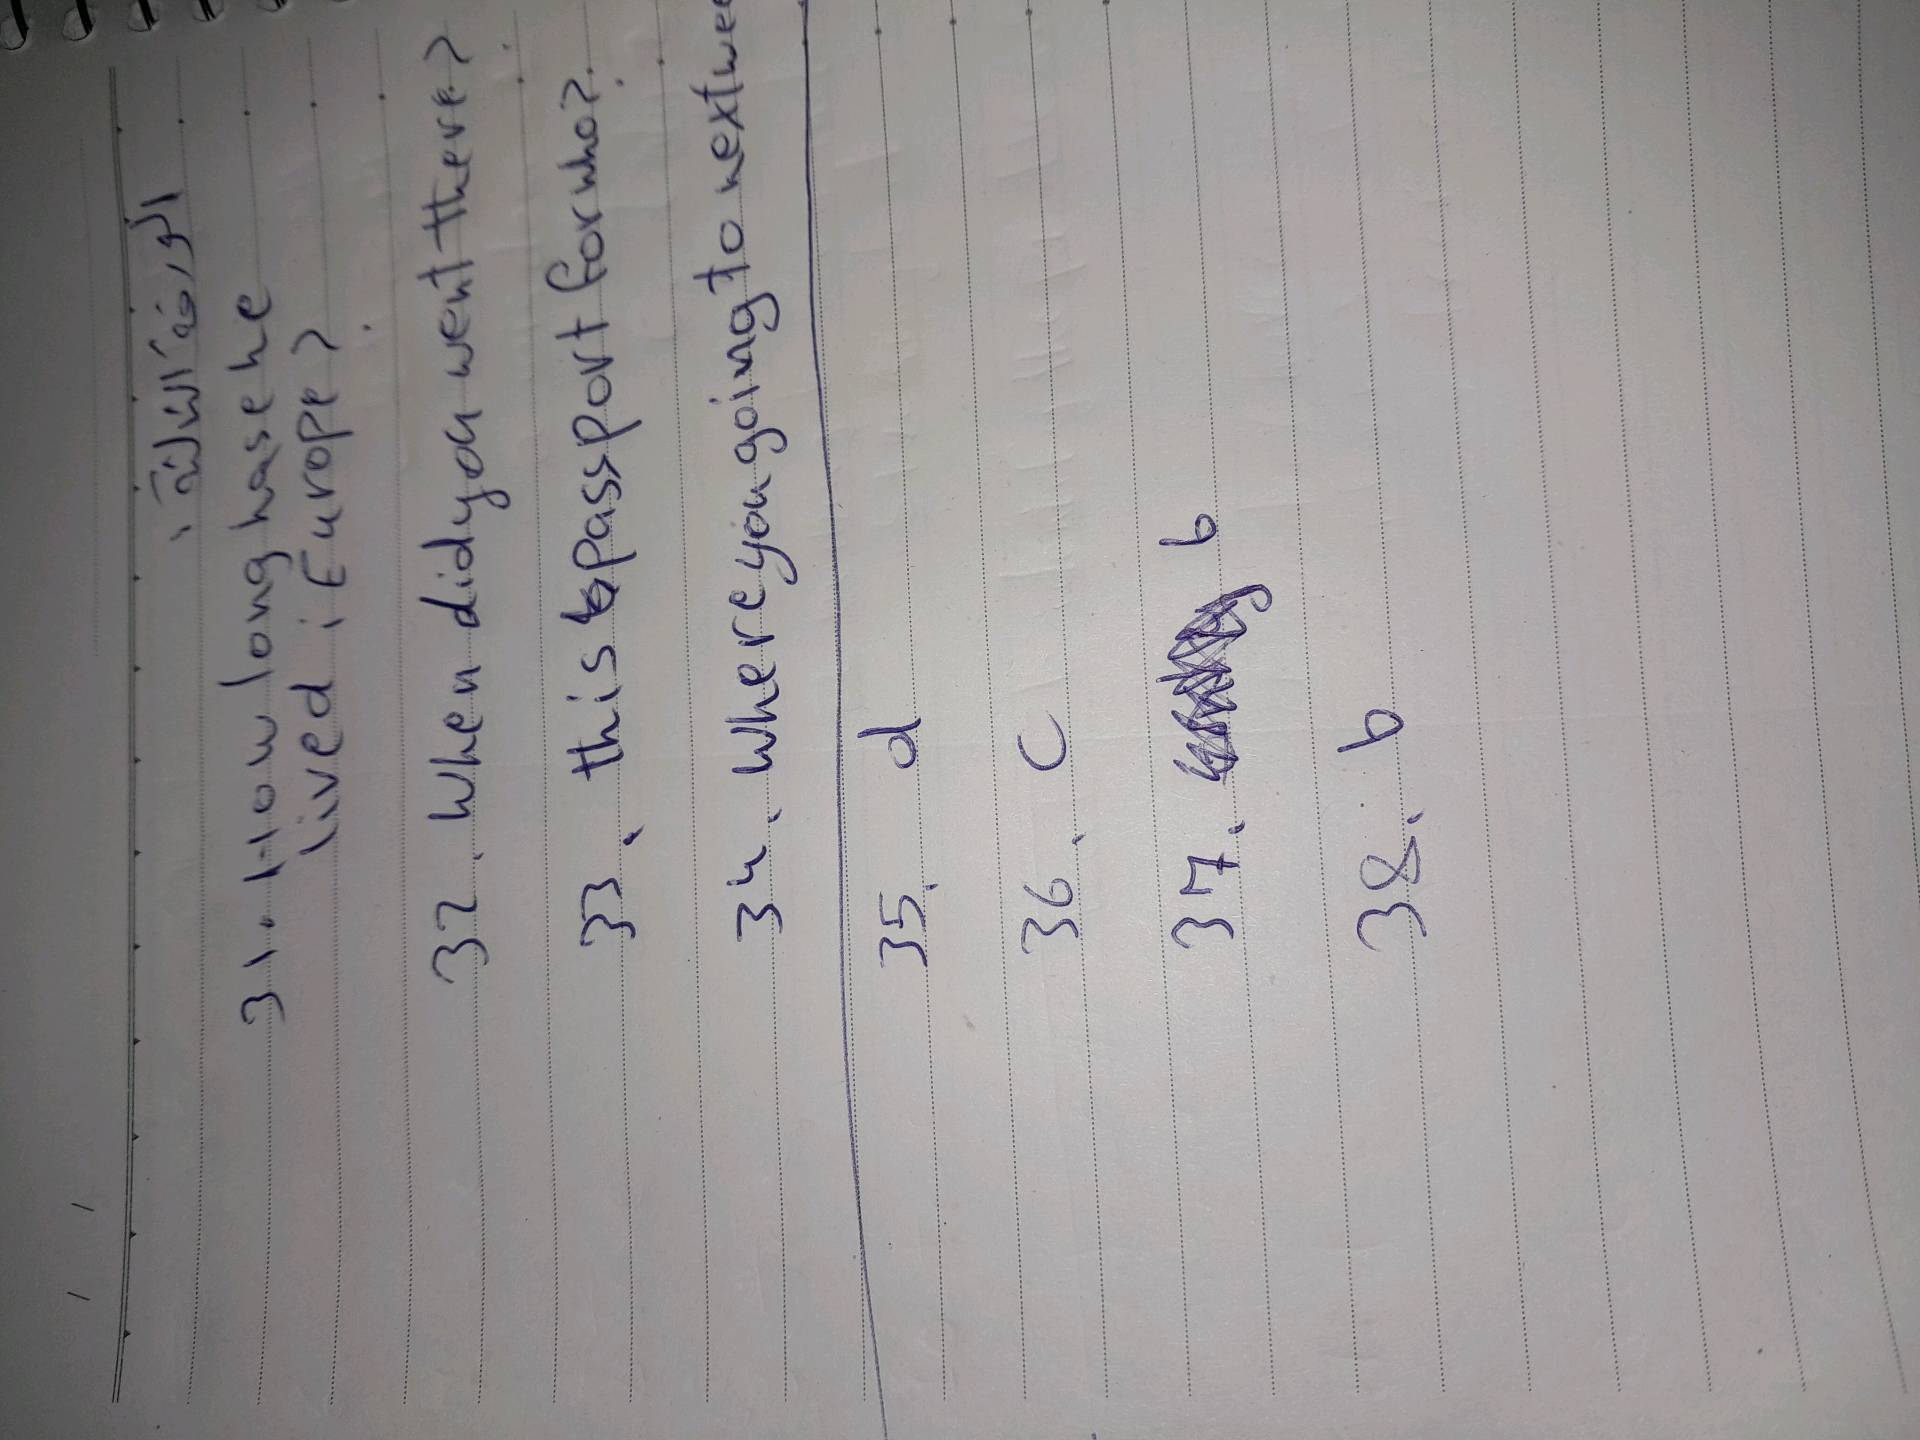 الورقة الثانية
31. How long has he
lived i Europe?
32. When did you went there?
33. this passport for who?
34. where you going to next wee
35. d
36. C
37. b
38. b